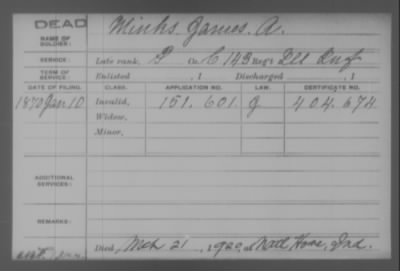 DEAD
NAME OF SOLDIER:
Minks. James. A.
SERVICE:
Late rank, P Co. C 143 Reg't Ill Inf
TERM OF SERVICE:
Enlisted , 1 Discharged , 1
DATE OF FILING. CLASS. APPLICATION NO. LAW. CERTIFICATE NO.
Jan 10 Invalid, 151.601. 404.674
Widow,
Minor,
ADDITIONAL SERVICES:
REMARKS:
Died Mch 21, 1920, at Natl Home, Ind.